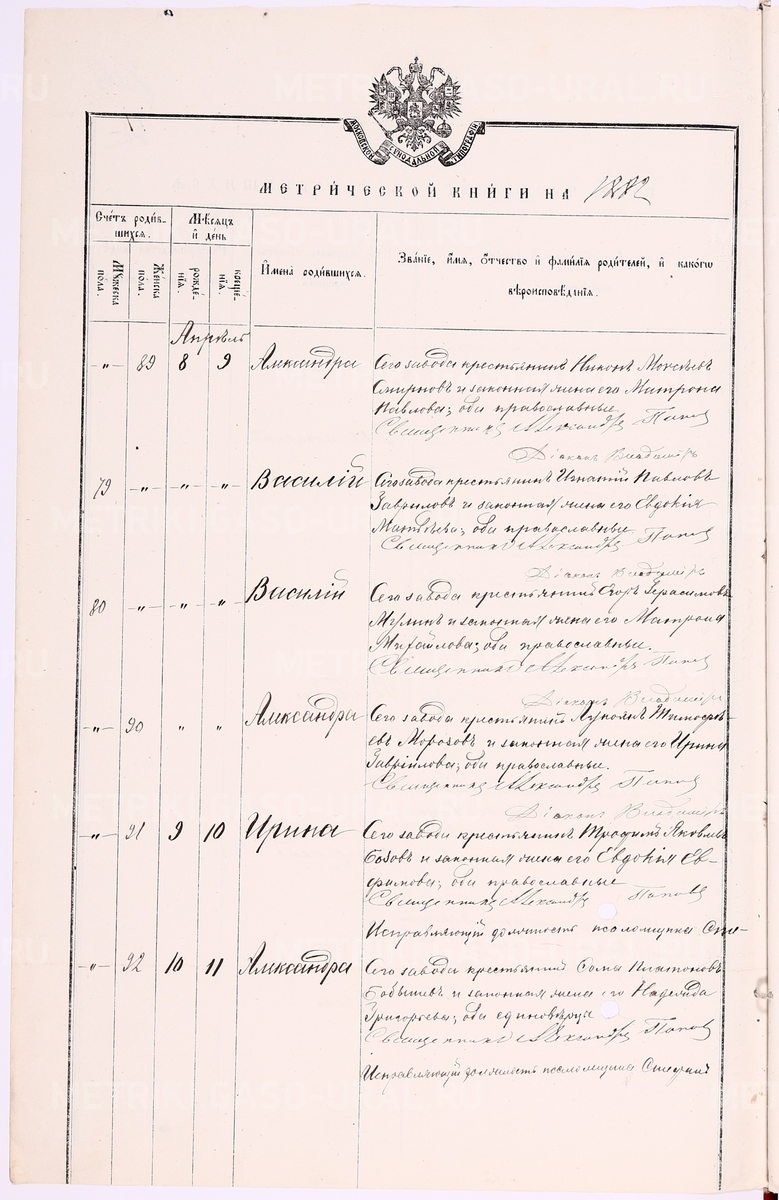 МОСКОВСКОЙ СѴНОДАЛЬНОЙ ТИПОГРАФІИ
МЕТРИ́ЧЕСКОЙ КНИ́ГИ НА 1882
Сче́тъ роди́в-
шихсѧ.
Мꙋ́жеска
пола.
Же́нска
пола.
Мѣ́сѧцъ
и҆ де́нь
рожде́-
нїѧ.
креще́-
нїѧ.
И҆мена̀ роди́вшихсѧ.
Зва́нїе, и҆́мѧ, ѻ҆́тчество и҆ фами́лїѧ роди́телей, и҆ како́гѡ
вѣроисповѣ́данїѧ.
Апрѣль
-„- 89 8 9 Александра
Сего завода крестьянинъ Никонъ Моисѣевъ
Смирновъ и законная жена его Матрона
Павлова; оба православные
Священникъ Александръ Поповъ
Діаконъ Владиміръ
79 -„- -„- „- Василій
Сего завода крестьянинъ Игнатій Павловъ
Гавриловъ и законная жена его Евдокія
Матвѣева; оба православные
Священникъ Александръ Поповъ
Діаконъ Владиміръ
80 -„- -„- -„- Василій
Сего завода крестьянинъ Егоръ Герасимовъ
и законная жена его Матрона
Михайлова; оба православные.
Священникъ Александръ Поповъ
Діаконъ Владиміръ
-„- 90 „ „ Александра
Сего завода крестьянинъ Лукоянъ Тимофѣ-
евъ Морозовъ и законная жена его Ирина
Гавріилова; оба православные.
Священникъ Александръ Поповъ
Діаконъ Владиміръ
-„- 91 9 10 Ирина
Сего завода крестьянинъ Трофимъ Яковлевъ
и законная жена его Евдокія Ев-
фимова; оба православные
Священникъ Александръ Поповъ
Исправляющій должность псаломщика Сте-
-„- 92 10 11 Александра
Сего завода крестьянинъ Платоновъ
Бобышевъ и законная жена его Надежда
Григорьева; оба единовѣрцы
Священникъ Александръ Поповъ
Исправляющій должность псаломщика Стефанъ